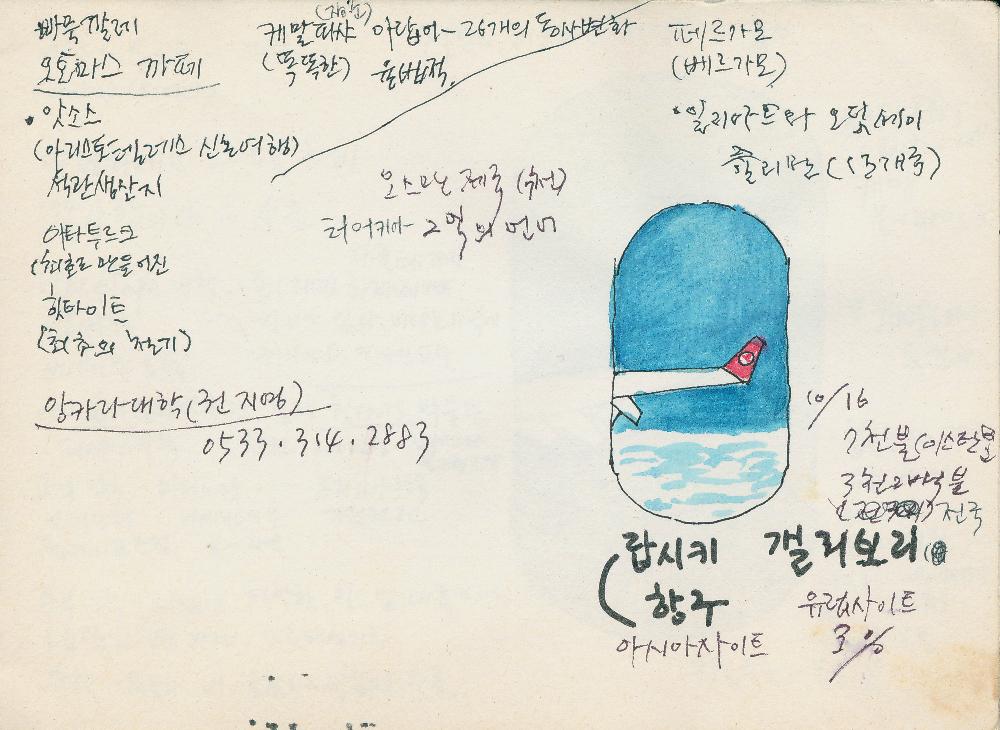 빠묵깔레
오토마스 까페
앗소스
(아리스토텔레스 신혼여행)
석관생산지
아타투르크
(최초로 만들어진
힛타이트
(최초의 철기)
앙카라대학(전지영)
0533.314.2883
케말파샤 아랍어- 26개의 동사변화
(똑똑한) 육법적
오스만 제국
터어키아 2억의 언어
페르가모
(베르가모)
·일리아드와 오딧세이
슐리만 (13개국)
10/16
7천불(이스탄불
3천오백불
전국
랍시키
항구
아시아사이트
갤리보리
유럽사이트
3%